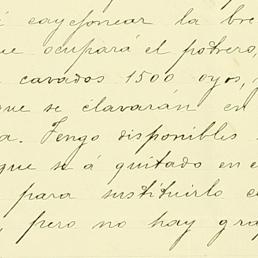 cayfonear la bre
que ocupará el potrero,
cavados 1500 oyos,
que se clavarán en
a. Tengo disponibles
que se á quitado en e
para sustituirlo c
, pero no hay gra